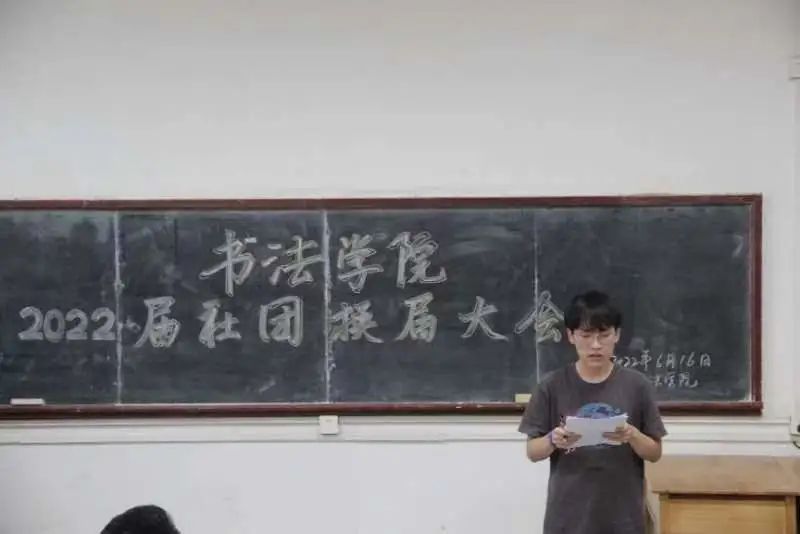 书法学院
2022届社团换届大会
2022年6月16日
法学院